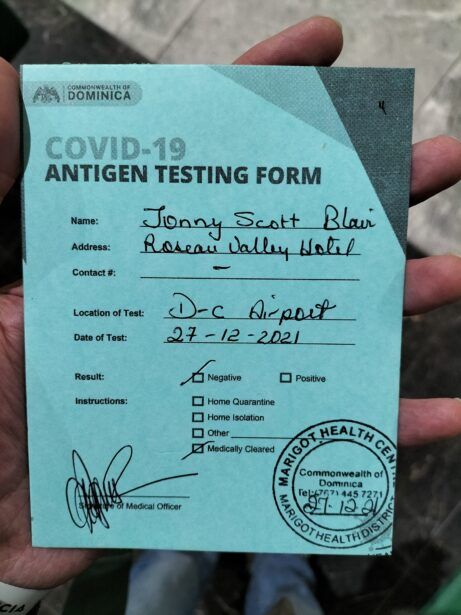 COMMONWEALTH OF
DOMINICA
4
COVID-19
ANTIGEN TESTING FORM
Name: Jonny Scott Blair
Address: Roseau Valley Hotel
Contact #: –
Location of Test: D-C Airport
Date of Test: 27-12-2021
Result: Negative Positive
Instructions: Home Quarantine
Home Isolation
Other
Medically Cleared
Signature of Medical Officer
MARIGOT HEALTH CENT
Commonwealth of
Dominica
Tel: (767) 445 7271
27.12.21
MARIGOT HEALTH DISTRI
CIA